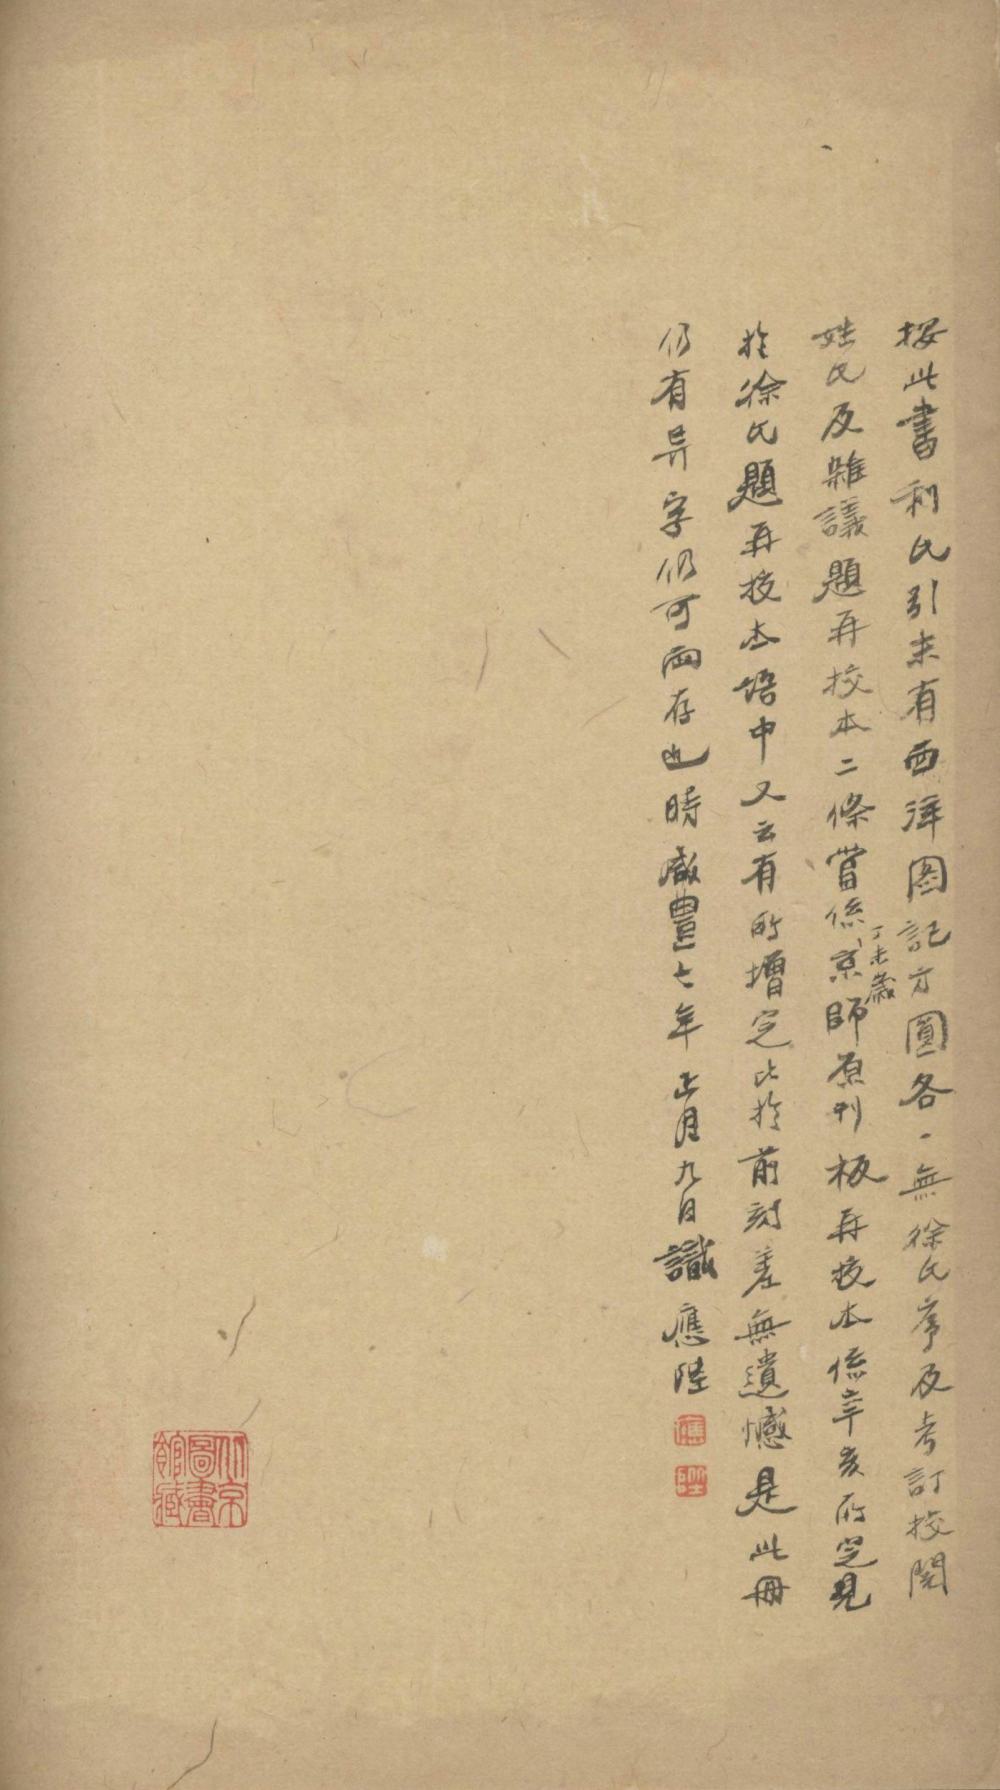 按此書利氏引末有西洋圖記方圓各一無徐氏序及考訂校閱
姓氏及雜議題再校本二條當係丁未歲京師原刊板再校本係辛亥所定見
於徐氏題再校本語中又云有所增定比於前刻差無遺憾是此冊
仍有异字仍可兩存也時咸豐七年正月九日識應陛
應
陛
北京圖書館藏